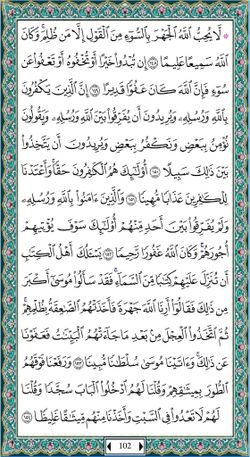 ۞ لَّا يُحِبُّ ٱللَّهُ ٱلْجَهْرَ بِٱلسُّوٓءِ مِنَ ٱلْقَوْلِ إِلَّا مَن ظُلِمَ ۚ وَكَانَ
ٱللَّهُ سَمِيعًا عَلِيمًا ١٤٨ إِن تُبْدُوا۟ خَيْرًا أَوْ تُخْفُوهُ أَوْ تَعْفُوا۟ عَن
سُوٓءٍ فَإِنَّ ٱللَّهَ كَانَ عَفُوًّا قَدِيرًا ١٤٩ إِنَّ ٱلَّذِينَ يَكْفُرُونَ
بِٱللَّهِ وَرُسُلِهِۦ وَيُرِيدُونَ أَن يُفَرِّقُوا۟ بَيْنَ ٱللَّهِ وَرُسُلِهِۦ وَيَقُولُونَ
نُؤْمِنُ بِبَعْضٍ وَنَكْفُرُ بِبَعْضٍ وَيُرِيدُونَ أَن يَتَّخِذُوا۟
بَيْنَ ذَٰلِكَ سَبِيلًا ١٥٠ أُو۟لَـٰٓئِكَ هُمُ ٱلْكَـٰفِرُونَ حَقًّا ۚ وَأَعْتَدْنَا
لِلْكَـٰفِرِينَ عَذَابًا مُّهِينًا ١٥١ وَٱلَّذِينَ ءَامَنُوا۟ بِٱللَّهِ وَرُسُلِهِۦ
وَلَمْ يُفَرِّقُوا۟ بَيْنَ أَحَدٍ مِّنْهُمْ أُو۟لَـٰٓئِكَ سَوْفَ يُؤْتِيهِمْ
أُجُورَهُمْ ۗ وَكَانَ ٱللَّهُ غَفُورًا رَّحِيمًا ١٥٢ يَسْـَٔلُكَ أَهْلُ ٱلْكِتَـٰبِ
أَن تُنَزِّلَ عَلَيْهِمْ كِتَـٰبًا مِّنَ ٱلسَّمَآءِ ۚ فَقَدْ سَأَلُوا۟ مُوسَىٰٓ أَكْبَرَ
مِن ذَٰلِكَ فَقَالُوٓا۟ أَرِنَا ٱللَّهَ جَهْرَةً فَأَخَذَتْهُمُ ٱلصَّـٰعِقَةُ بِظُلْمِهِمْ ۚ
ثُمَّ ٱتَّخَذُوا۟ ٱلْعِجْلَ مِنۢ بَعْدِ مَا جَآءَتْهُمُ ٱلْبَيِّنَـٰتُ فَعَفَوْنَا
عَن ذَٰلِكَ ۚ وَءَاتَيْنَا مُوسَىٰ سُلْطَـٰنًا مُّبِينًا ١٥٣ وَرَفَعْنَا فَوْقَهُمُ
ٱلطُّورَ بِمِيثَـٰقِهِمْ وَقُلْنَا لَهُمُ ٱدْخُلُوا۟ ٱلْبَابَ سُجَّدًا وَقُلْنَا
لَهُمْ لَا تَعْدُوا۟ فِى ٱلسَّبْتِ وَأَخَذْنَا مِنْهُم مِّيثَـٰقًا غَلِيظًا ١٥٤
102